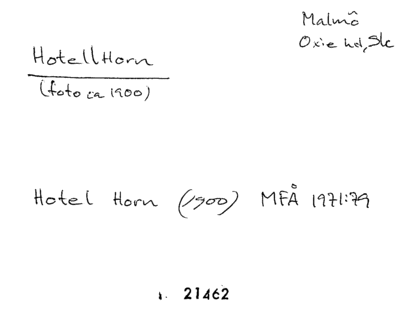 Malmö
Oxie hd, Sk
Hotell Horn
(foto ca 1900)
Hotel Horn (1900) MFÅ 1971:79
21462